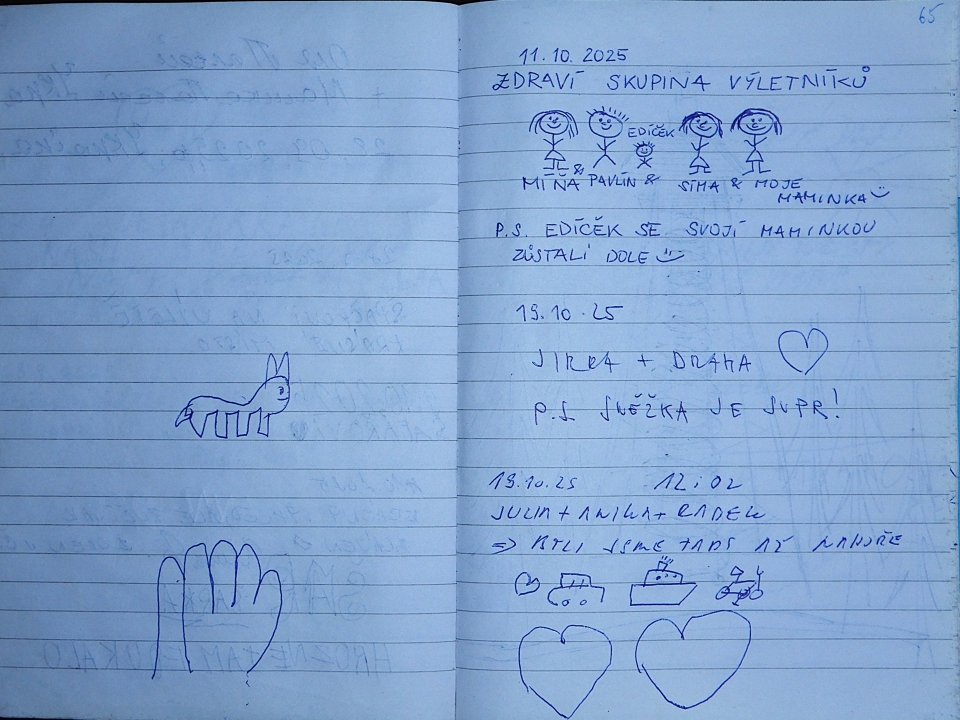 65
11.10.2025
ZDRAVÍ SKUPINA VÝLETNÍKŮ
EDÍČEK
MÍŇA & PAVLÍN & SÍMA & MOJE
MAMINKA
P.S. EDÍČEK SE SVOJÍ MAMINKOU
ZŮSTALI DOLE
19.10.25
JIRKA + DRAHA
P.S. SNĚŽKA JE SUPR!
19.10.25 12:02
JULIA + ANIKA + RADEK
=> BYLI JSME TADY AŽ NAHOŘE